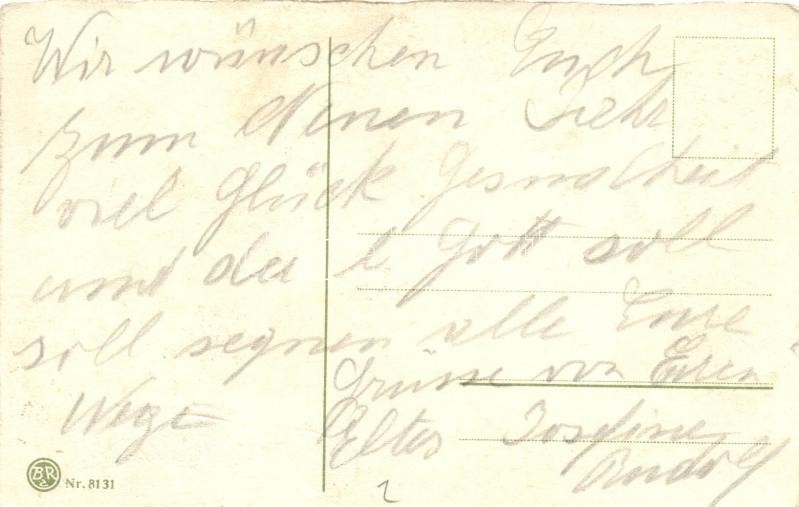 Wir wünschen Euch
zum Neuen Jahr
viel Glück Gesundheit
und der l. Gott soll
soll segnen alle Eure
Wege Grüsse von Euren
Josefine
Rudolf
BR
Nr. 8131